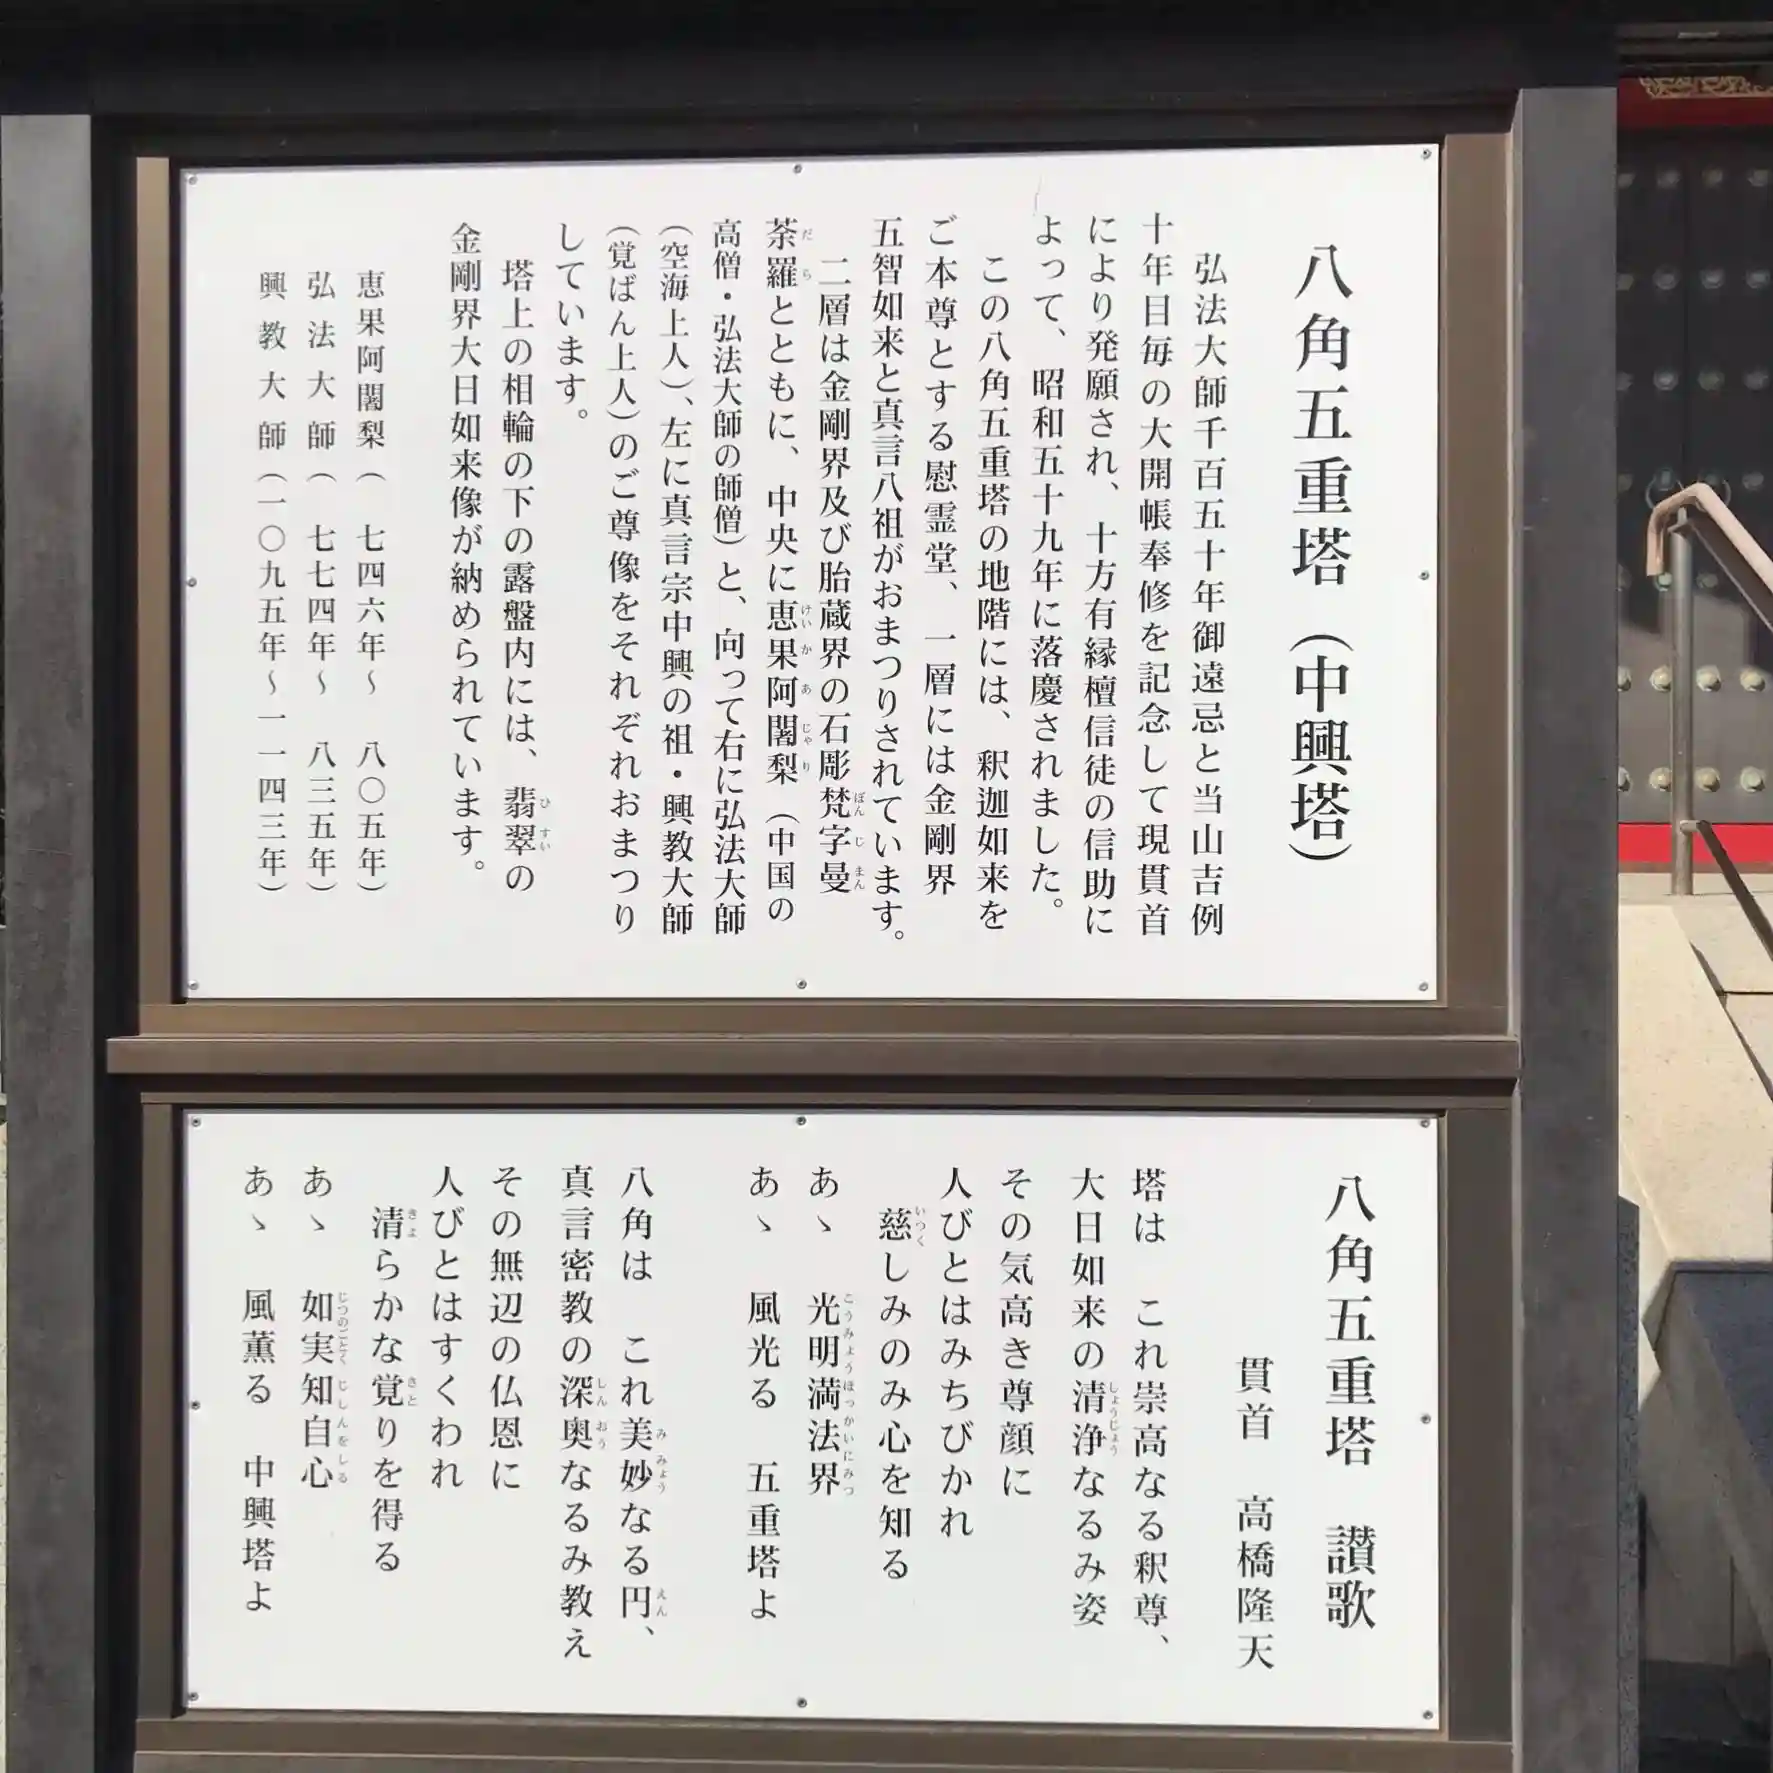 八角五重塔（中興塔）
弘法大師千百五十年御遠忌と当山吉例
十年目毎の大開帳奉修を記念して現貫首
により発願され、十方有縁檀信徒の信助に
よって、昭和五十九年に落慶されました。
この八角五重塔の地階には、釈迦如来を
ご本尊とする慰霊堂、一層には金剛界
五智如来と真言八祖がおまつりされています。
二層は金剛界及び胎蔵界の石彫梵字曼
荼羅とともに、中央に恵果阿闍梨（中国の
高僧・弘法大師の師僧）と、向って右に弘法大師
（空海上人）、左に真言宗中興の祖・興教大師
（覚ばん上人）のご尊像をそれぞれおまつり
しています。
塔上の相輪の下の露盤内には、翡翠の
金剛界大日如来像が納められています。
恵果阿闍梨（　七四六年～　八〇五年）
弘法大師（　七七四年～　八三五年）
興教大師（一〇九五年～一一四三年）
八角五重塔　讃歌
貫首　高橋隆天
塔は　これ崇高なる釈尊、
大日如来の清浄なるみ姿
その気高き尊顔に
人びとはみちびかれ
慈しみのみ心を知る
あゝ　光明満法界
あゝ　風光る　五重塔よ
八角は　これ美妙なる円、
真言密教の深奥なるみ教え
その無辺の仏恩に
人びとはすくわれ
清らかな覚りを得る
あゝ　如実知自心
あゝ　風薫る　中興塔よ